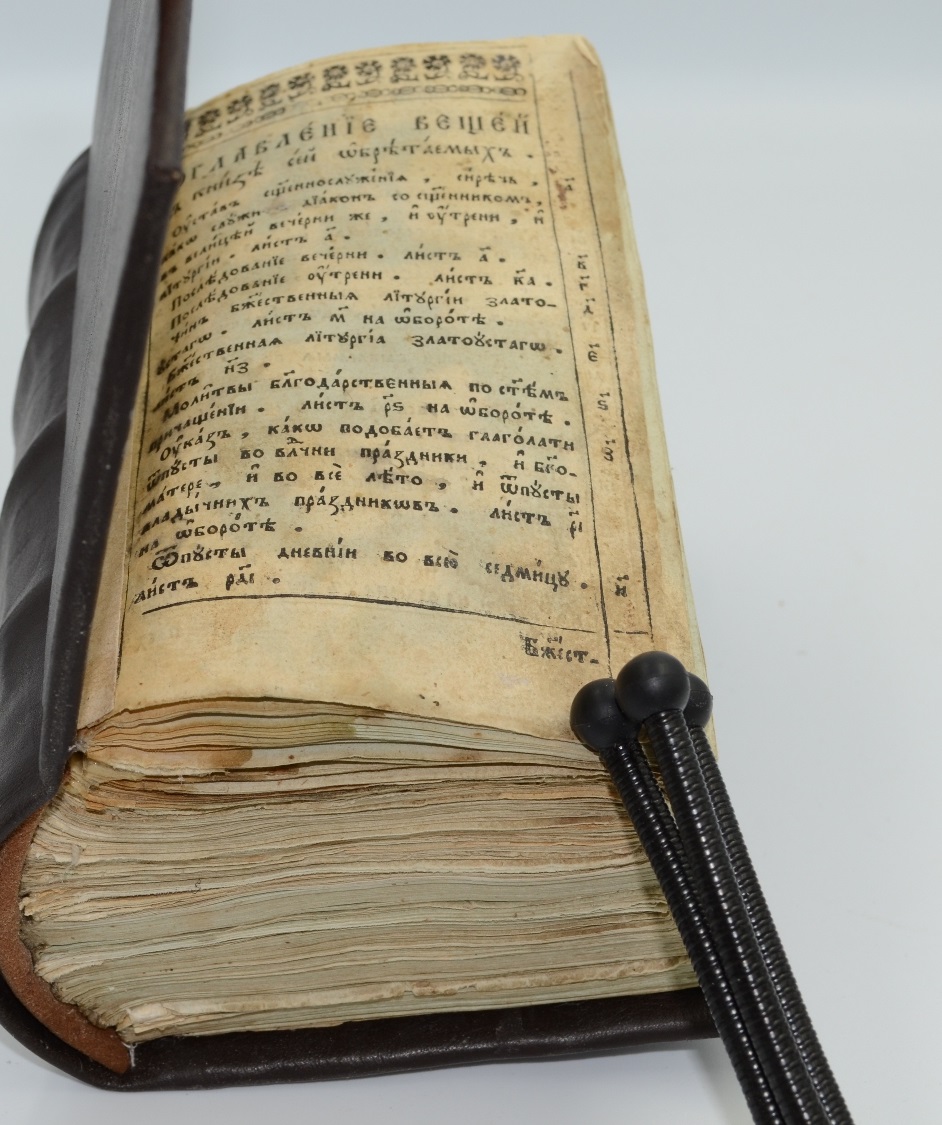 ГЛАВЛЕ́НЇЕ ВЕЩЕ́Й
кни́зѣ се́й ѡ҆брѣта́емыхъ .
Оу҆ста́въ сщ҃еннослꙋже́нїѧ , си́рѣчь , а҃
ка́кѡ слꙋжи дїа́конъ со сщ҃е́нникомъ ,
въ вели́цѣй вече́рни же , и҆ ᲂу҆́трени , и҆
лїтꙋргі́и . ли́стъ а҃ .
Послѣ́дованїе вече́рни . ли́стъ а҃ . в҃
Послѣ́дованїе ᲂу҆́трени . ли́стъ к҃а . г҃
Чи́нъ бж҃е́ственныѧ лїтꙋргі́и Злато- д҃
ꙋ́стагѡ . ли́стъ м҃ на ѡ҆боро́тѣ .
Бж҃е́ственнаѧ лїтꙋргі́а Златоꙋ́стагѡ . є҃
ли́стъ н҃з .
Моли́твы бл҃года́рственныѧ по ст҃ѣ́мъ ѕ҃
причаще́нїи . ли́стъ р҃ѕ на ѡ҆боро́тѣ .
Оу҆ка́зъ , ка́кѡ подоба́етъ глаго́лати з҃
ѿпꙋ́сты во влⷣчни пра́здники , и҆ бг҃о-
ма́тере , и҆ во всѐ лѣ́то , и҆ ѿпꙋ́сты
влады́чнихъ пра́здникѡвъ . ли́стъ р҃і
на ѡ҆боро́тѣ .
Ѿпꙋ́сты дневні́и во всю̀ седми́цꙋ . и҃
ли́стъ р҃ді .
Бж҃е́ст-